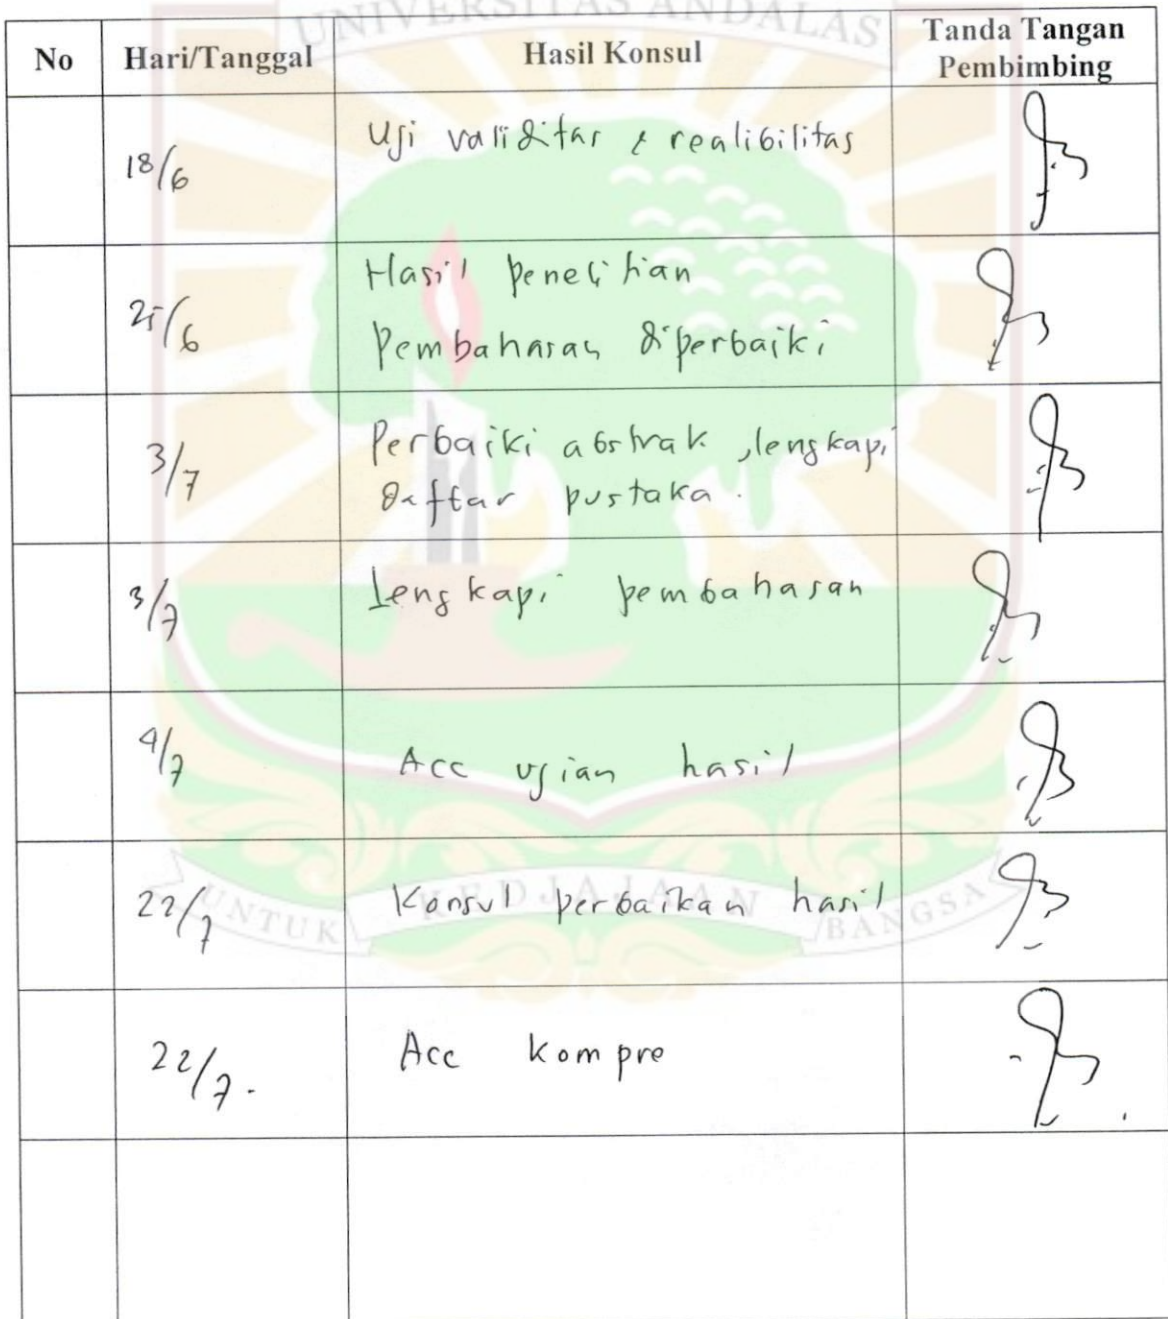 UNIVERSITAS ANDALAS
No Hari/Tanggal Hasil Konsul Tanda Tangan Pembimbing
18/6 Uji validitas & realibilitas
25/6 Hasil penelitian
Pembahasan diperbaiki
3/7 Perbaiki abstrak, lengkapi
daftar pustaka.
3/7 Lengkapi pembahasan
4/7 Acc ujian hasil
22/7 Konsul perbaikan hasil
UNTUK KEDJAJAAN BANGSA
22/7. Acc kompre